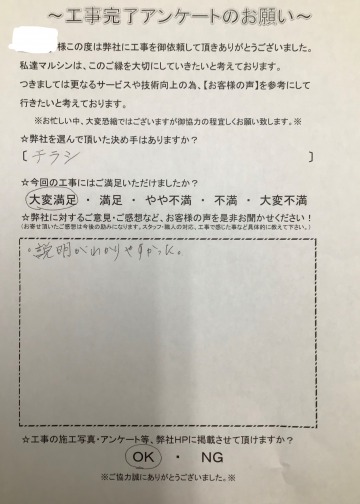 ～工事完了アンケートのお願い～
様この度は弊社に工事を御依頼して頂きありがとうございました。
私達マルシンは、このご縁を大切にしていきたいと考えております。
つきましては更なるサービスや技術向上の為、【お客様の声】を参考にして
行きたいと考えております。
※お忙しい中、大変恐縮ではございますが御協力の程宜しくお願い致します。※
☆弊社を選んで頂いた決め手はありますか？
[ チラシ ]
☆今回の工事にはご満足いただけましたか？
大変満足 ・ 満足 ・ やや不満 ・ 不満 ・ 大変不満
☆弊社に対するご意見・ご感想など、お客様の声を是非お聞かせください！
(お寄せ頂いたご感想は今後の励みになります。スタッフ・職人の対応、工事で感じた事など具体的に教えて下さい。)
・説明がわかりやすかった。
☆工事の施工写真・アンケート等、弊社HPに掲載させて頂けますか？
OK ・ NG
※ご協力誠にありがとうございました。※